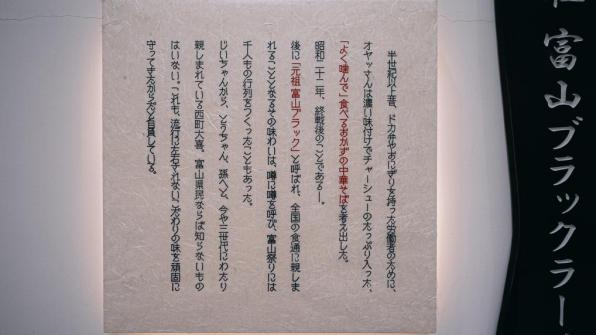 富山ブラックラー
半世紀以上昔、ドカ弁やおにぎりを持った労働者のために、
オヤッさんは濃い味付けでチャーシューのたっぷり入った、
「よく噛んで」食べるおかずの中華そばを考え出した。
昭和二十二年、終戦後のことである―。
後に「元祖富山ブラック」と呼ばれ、全国の食通に親しま
れることとなるその味わいは、噂に噂を呼び、富山祭りには
千人もの行列をつくったこともあった。
じいちゃんから、とうちゃん、孫へと、今や三世代にわたり
親しまれている西町大喜、富山県民ならば知らないもの
はいない。これも、流行に左右されない、こだわりの味を頑固に
守ってきたからだと自負している。